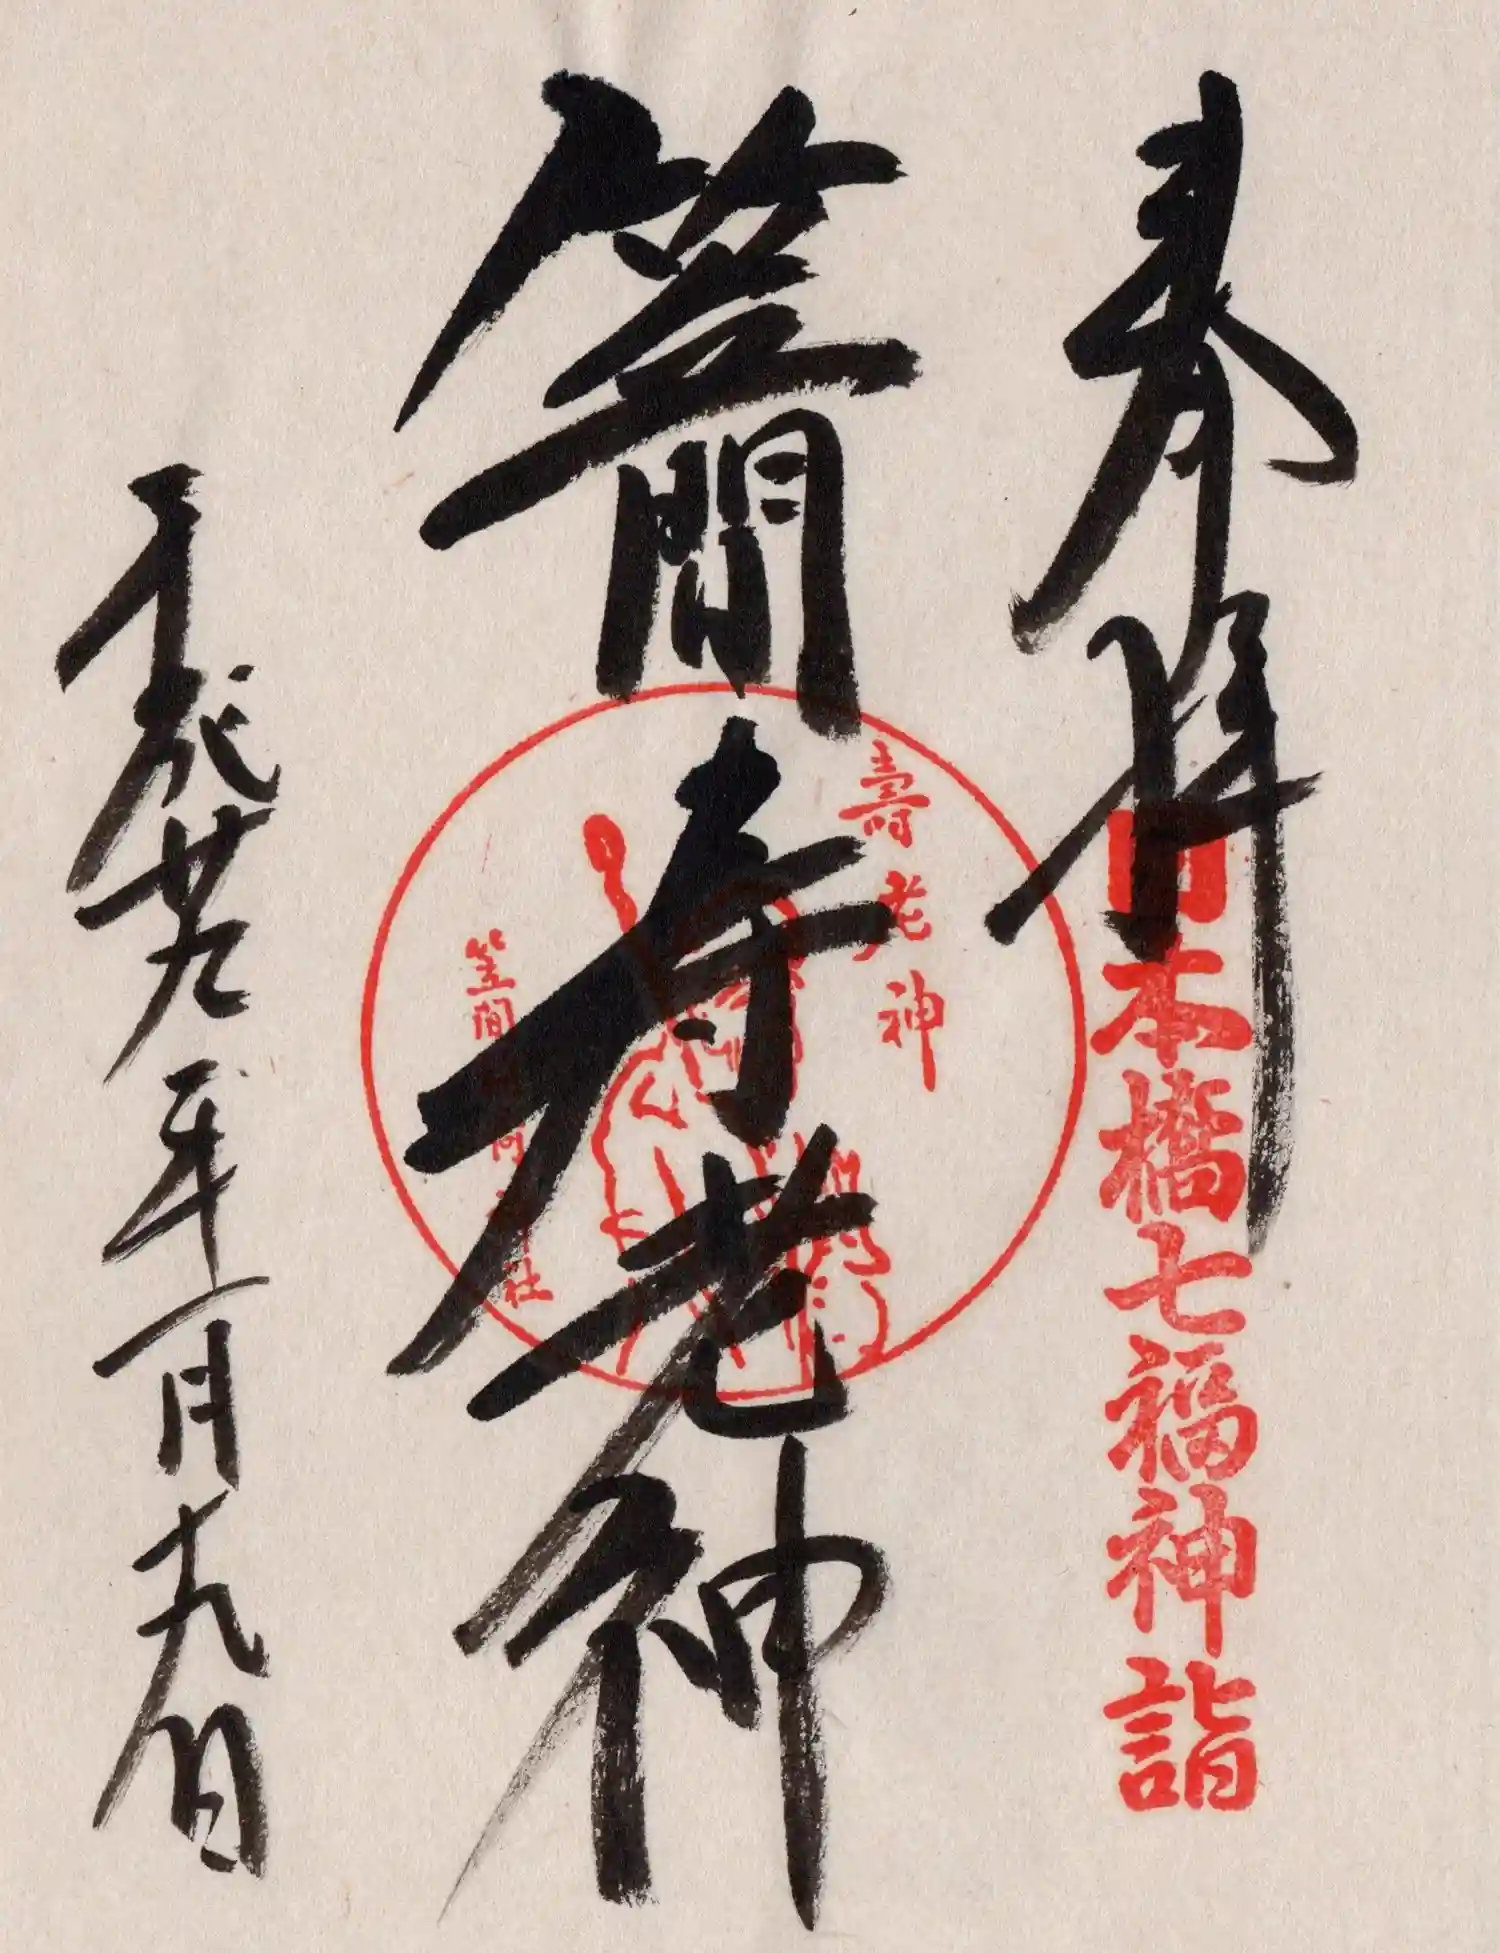 奉拝
日本橋七福神詣
笠間寿老神
壽老神
笠間
社
平成廿九年一月十九日